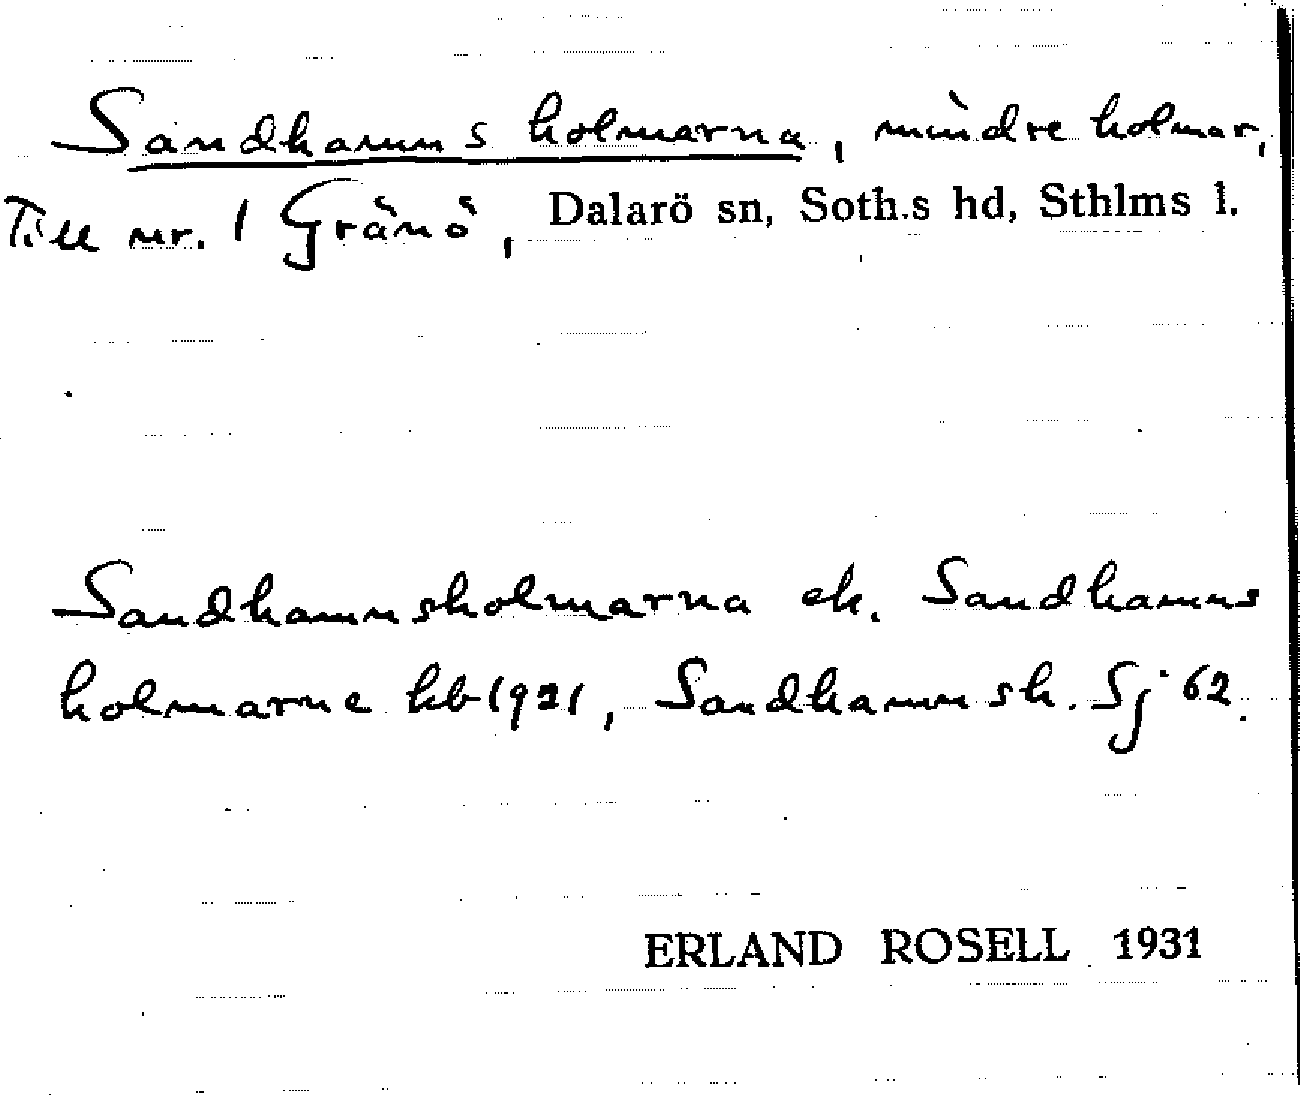 Sandhamns holmarna, mindre holmar,
Till nr. 1 Gränö, Dalarö sn, Soth.s hd, Sthlms l.
Sandhamnsholmarna ek. Sandhamns
holmarne hb 1921, Sandhamnsh. Sj 62.
ERLAND ROSELL 1931